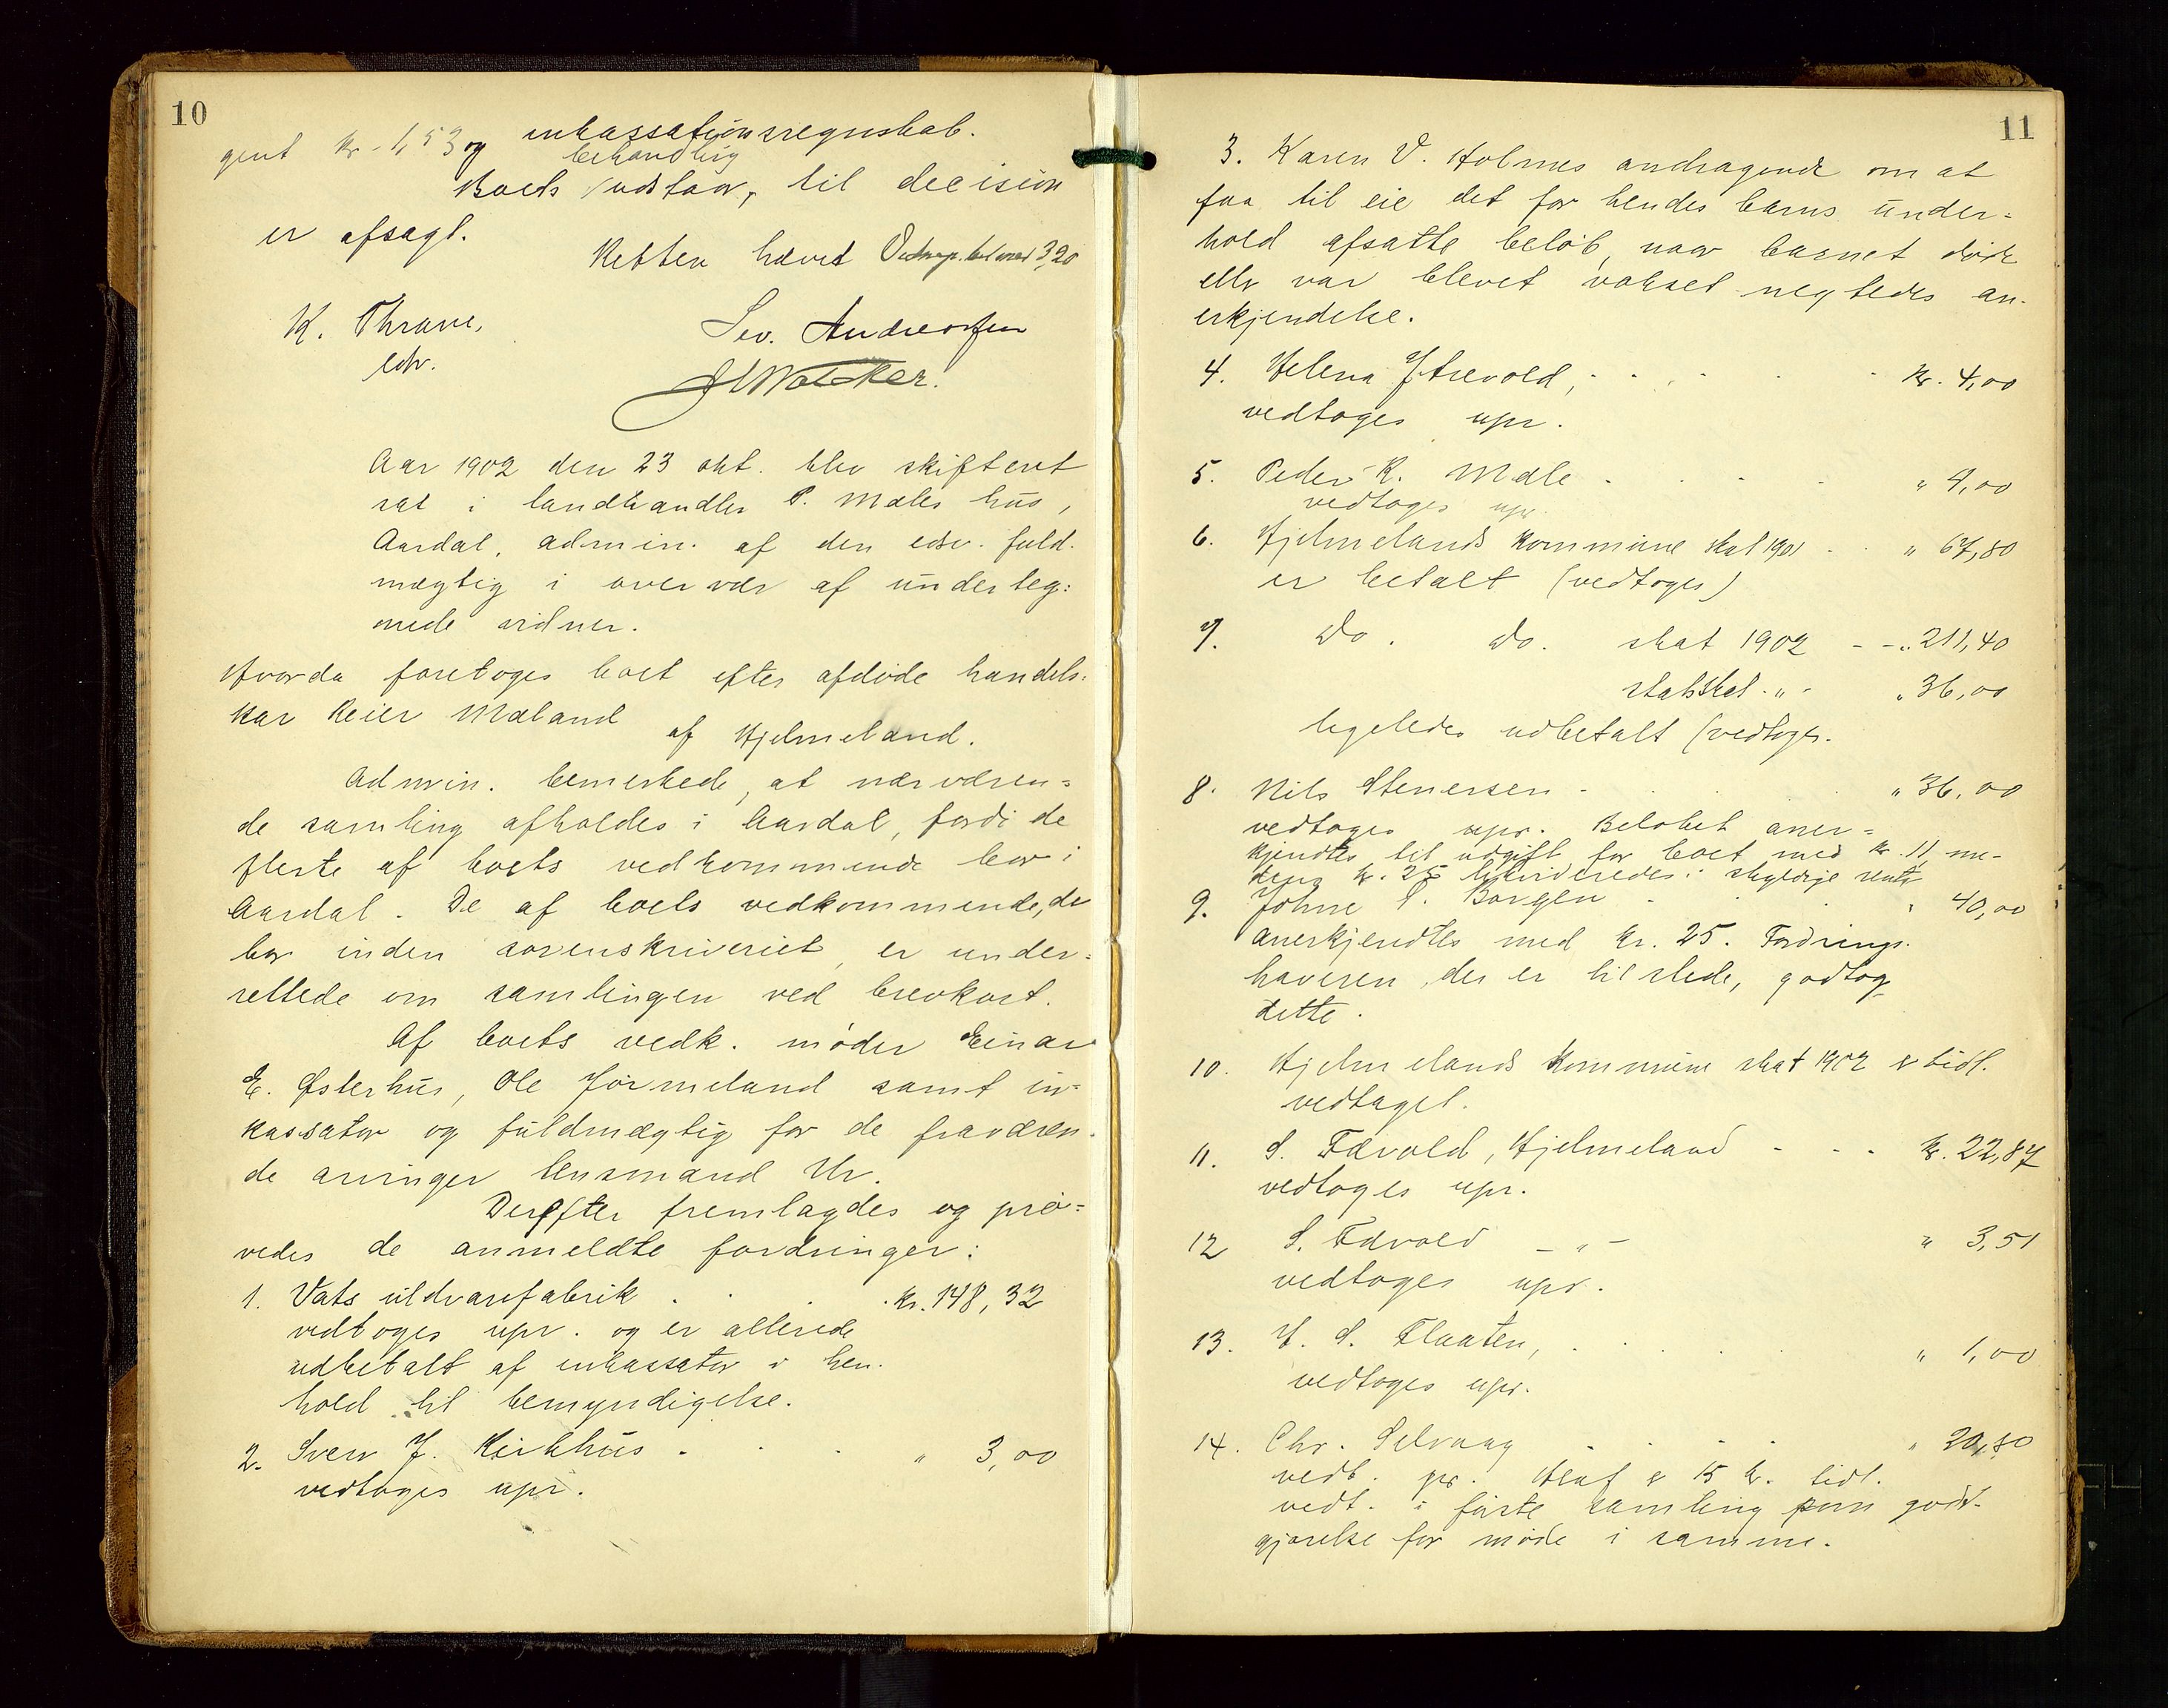 10
inkassationsregnskab.
gent kr. 1,53 og
behandling
Boets udstaar, til decision
er afsagt.
Retten hævet
K. Thrane,
edv.
Sev. Andreassen
Aar 1902 den 23 okt. blev skifteret
sat i landhandler P. Mæles hus,
Aardal, admin. af den edsv. fuld-
mægtig i overvær af underteg:
nede vidner.
Hvorda foretoges boet efter afdøde handels:
kar Reier Mæland
af Hjelmeland.
Admin. bemerkede, at nærværen=
de samling afholdes i Aardal, fordi de
fleste af boets vedkommende bor i
Aardal. De af boets vedkommende, der
bor inden sorenskriveriet, er under=
rettede om samlingen ved brevkort.
Af boets vedk. møder Einar
E. Østerhus, Ole Jørmeland samt in=
kassator og fuldmægtig for de fraværen-
de arvinger lensmand Ur.
Derefter fremlagdes og prø=
vedes de anmeldte fordringer:
1. Vats uldvarefabrik . . . kr. 148,32
vedtoges upr. og er allerede
udbetalt af inkassator i hen-
hold til bemyndigelse.
2. Sven J. Kirkhus . . . " 3,00
vedtoges upr.
11
3. Karen V. Holmes andragende om at
faa til eie det for hendes barns under=
hold afsatte beløb, naar barnet døde
eller var blevet vokset negtedes an-
erkjendelse.
4. Helena Ytrevold, . . . kr. 4,00
vedtoges upr.
5. Peder K. Mæle . . . " 4,00
vedtoges upr.
6. Hjelmelands kommune skat 1901 . . " 67,80
er betalt (vedtoges)
7. Do. do. skat 1902 - - " 211,40
statsskat - " - " 36,00
ligeledes udbetalt (vedtoges.
8. Nils Stenersen - . . " 36,00
vedtoges upr. Beløbet aner=
kjendtes til udgift for boet med kr. 11, me-
dens kr. 25 likvideredes i skyldige renter
9. Johne P. Borgen . . . " 40,00
anerkjendtes med kr. 25. Fordrings-
haveren, der er tilstede, godtog
dette.
10. Hjelmelands kommune skat 1902 er tidl.
vedtaget.
11. S. Fævold, Hjelmeland - - - kr. 22,87
vedtoges upr.
12 S. Fævold - " - " 3,51
vedtoges upr.
13. H. S. Flaaten, . . . " 1,00
vedtoges upr.
14. Chr. Selvaag . . . " 20,80
vedt. pr. Heraf er 15 kr. tidl.
vedt. i første samling som godt-
gjørelse for møde i samme.